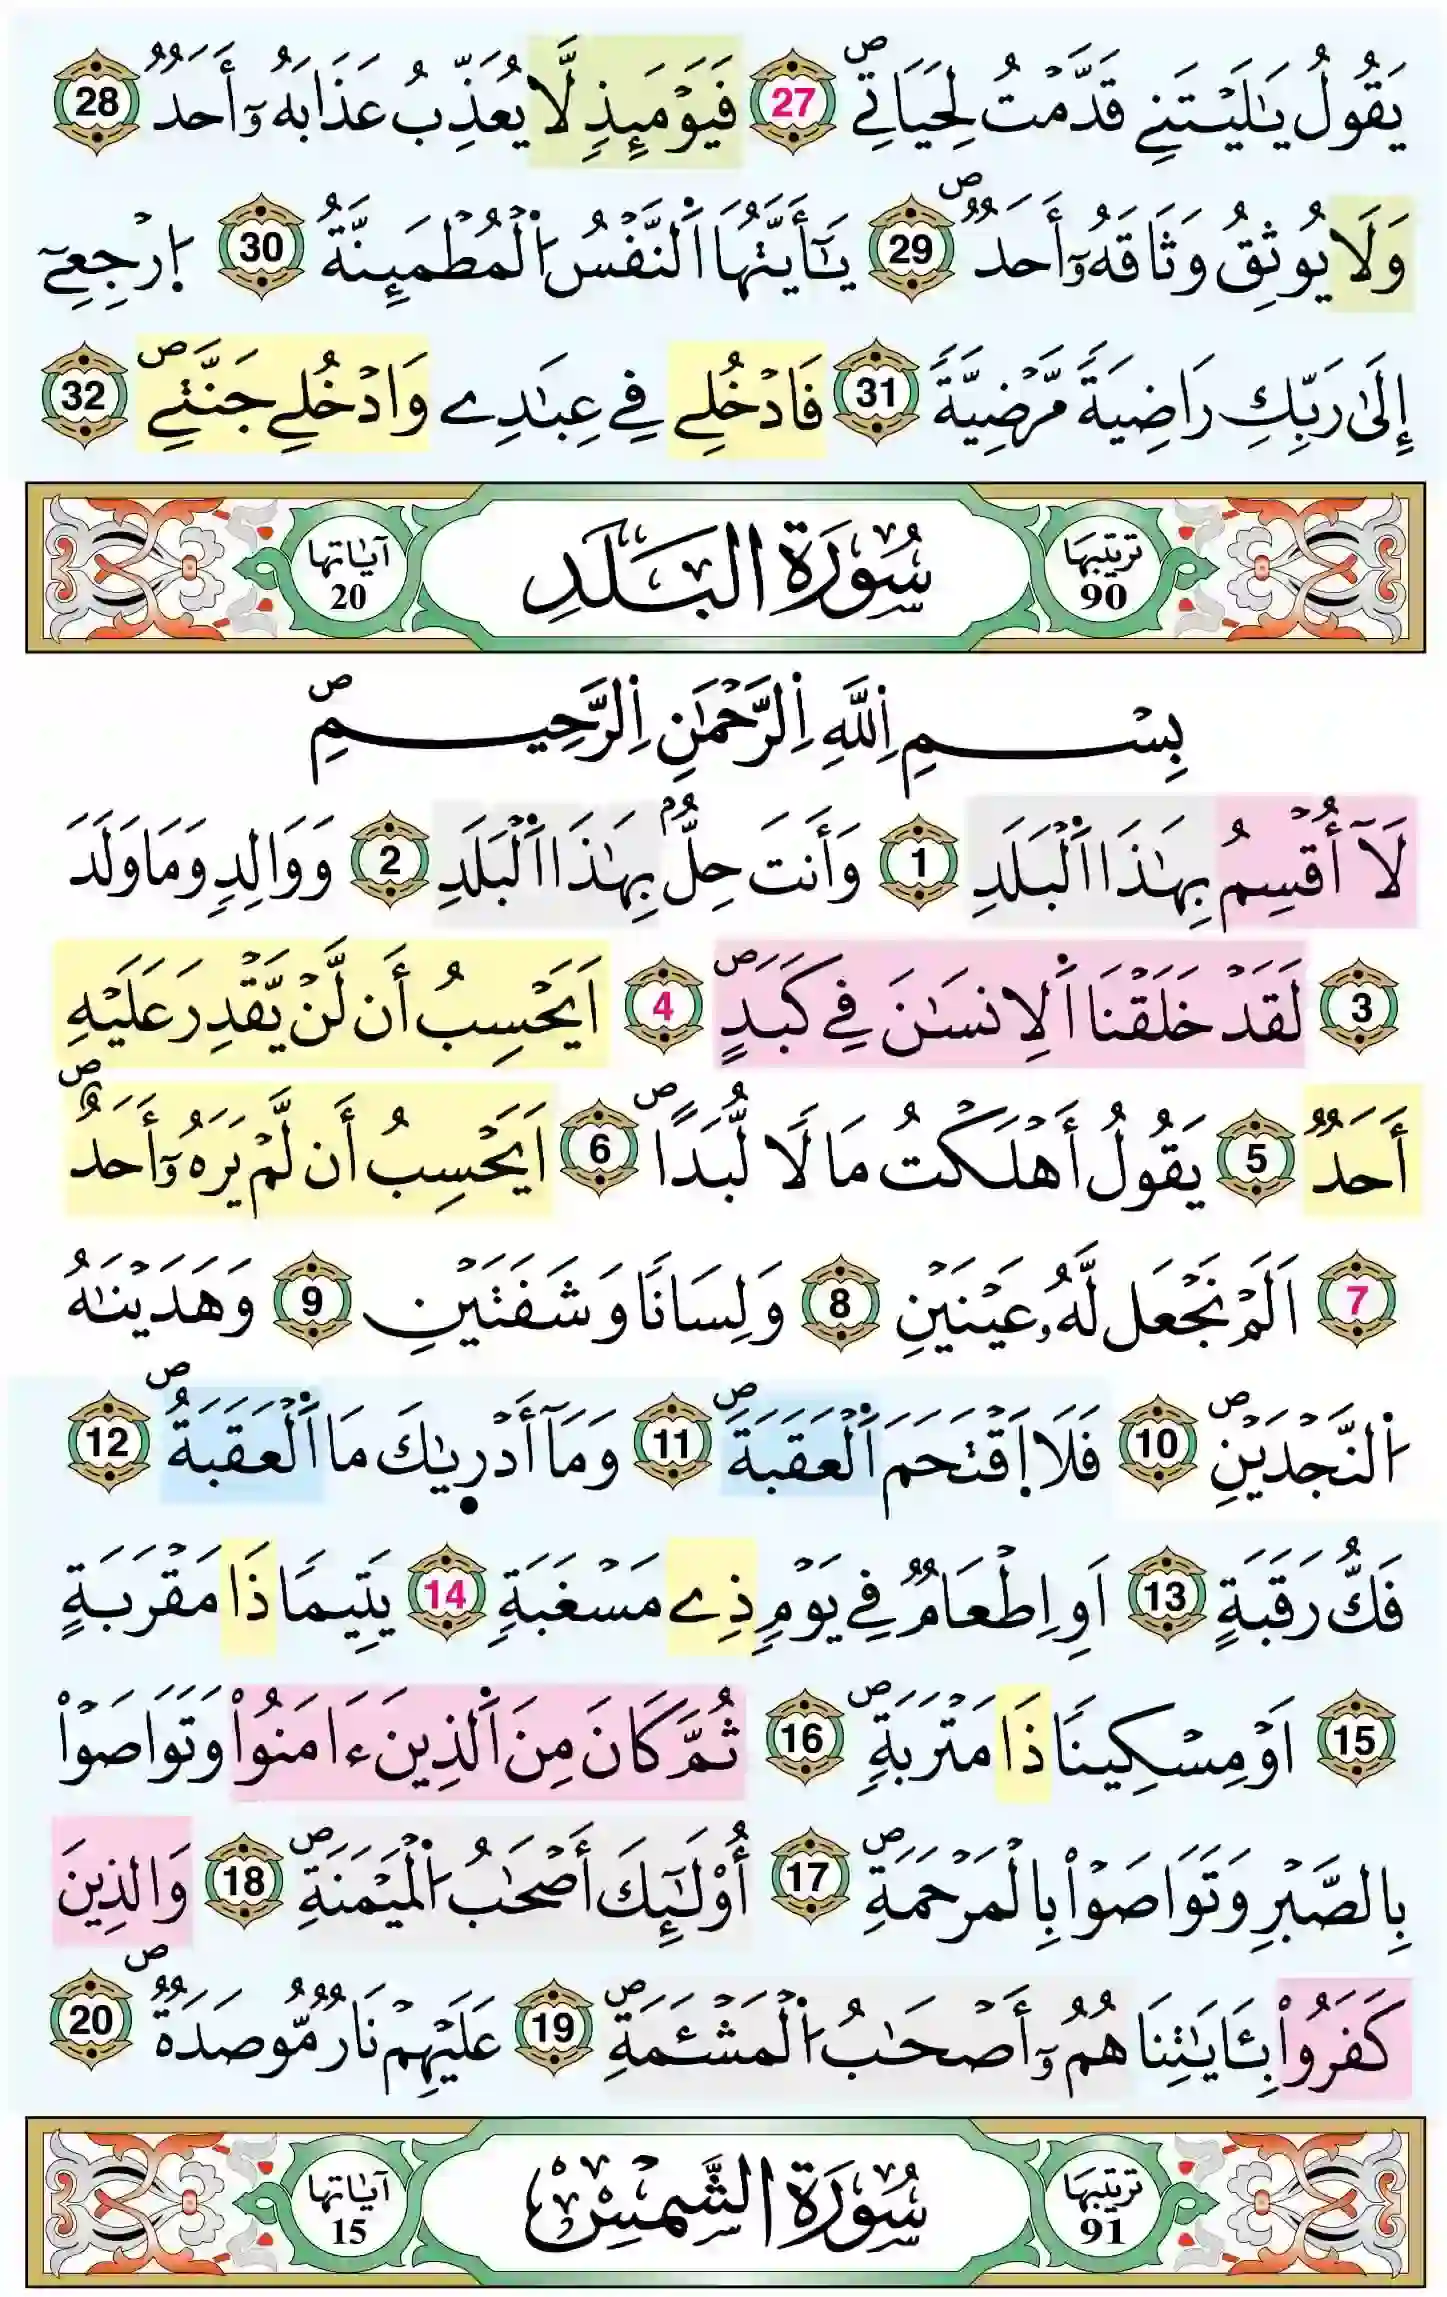 يَقُولُ يَٰلَيْتَنِے قَدَّمْتُ لِحَيَاتِےۖ 27 فَيَوْمَئِذٖ لَّا يُعَذِّبُ عَذَابَهُۥٓ أَحَدٞ 28
وَلَا يُوثِقُ وَثَاقَهُۥٓ أَحَدٞۖ 29 يَٰٓأَيَّتُهَا اَ۬لنَّفْسُ اُ۬لْمُطْمَئِنَّةُ 30 اُ۪رْجِعِےٓ
إِلَىٰ رَبِّكِ رَاضِيَةٗ مَّرْضِيَّةٗ 31 فَادْخُلِے فِے عِبَٰدِے وَادْخُلِے جَنَّتِےۖ 32
ترتيبها 90 سُورَةُ الْبَلَدِ آياتها 20
بِسْمِ اِ۬للَّهِ اِ۬لرَّحْمَٰنِ اِ۬لرَّحِيمِۖ
لَآ أُقْسِمُ بِهَٰذَا اَ۬لْبَلَدِ 1 وَأَنتَ حِلُّۢ بِهَٰذَا اَ۬لْبَلَدِ 2 وَوَالِدٖ وَمَا وَلَدَ
3 لَقَدْ خَلَقْنَا اَ۬لِانسَٰنَ فِے كَبَدٍۖ 4 اَيَحْسِبُ أَن لَّنْ يَّقْدِرَ عَلَيْهِ
أَحَدٞ 5 يَقُولُ أَهْلَكْتُ مَالاٗ لُّبَداًۖ 6 اَيَحْسِبُ أَن لَّمْ يَرَهُۥٓ أَحَدٌۖ
7 اَلَمْ نَجْعَل لَّهُۥ عَيْنَيْنِ 8 وَلِسَاناٗ وَشَفَتَيْنِ 9 وَهَدَيْنَٰهُ
اُ۬لنَّجْدَيْنِۖ 10 فَلَا اَ۪قْتَحَمَ اَ۬لْعَقَبَةَۖ 11 وَمَآ أَدْر۪يٰكَ مَا اَ۬لْعَقَبَةُۖ 12
فَكُّ رَقَبَةٍ 13 اَوِ اِطْعَٰمٞ فِے يَوْمٖ ذِے مَسْغَبَةٖ 14 يَتِيماٗ ذَا مَقْرَبَةٍ
15 اَوْ مِسْكِيناٗ ذَا مَتْرَبَةٖۖ 16 ثُمَّ كَانَ مِنَ اَ۬لذِينَ ءَامَنُواْ وَتَوَاصَوْاْ
بِالصَّبْرِ وَتَوَاصَوْاْ بِالْمَرْحَمَةِۖ 17 أُوْلَٰٓئِكَ أَصْحَٰبُ اُ۬لْمَيْمَنَةِۖ 18 وَالذِينَ
كَفَرُواْ بِـَٔايَٰتِنَا هُمُۥٓ أَصْحَٰبُ اُ۬لْمَشْـَٔمَةِۖ 19 عَلَيْهِمْ نَارٞ مُّوصَدَةٞۖ 20
ترتيبها 91 سُورَةُ الشَّمْسِ آياتها 15